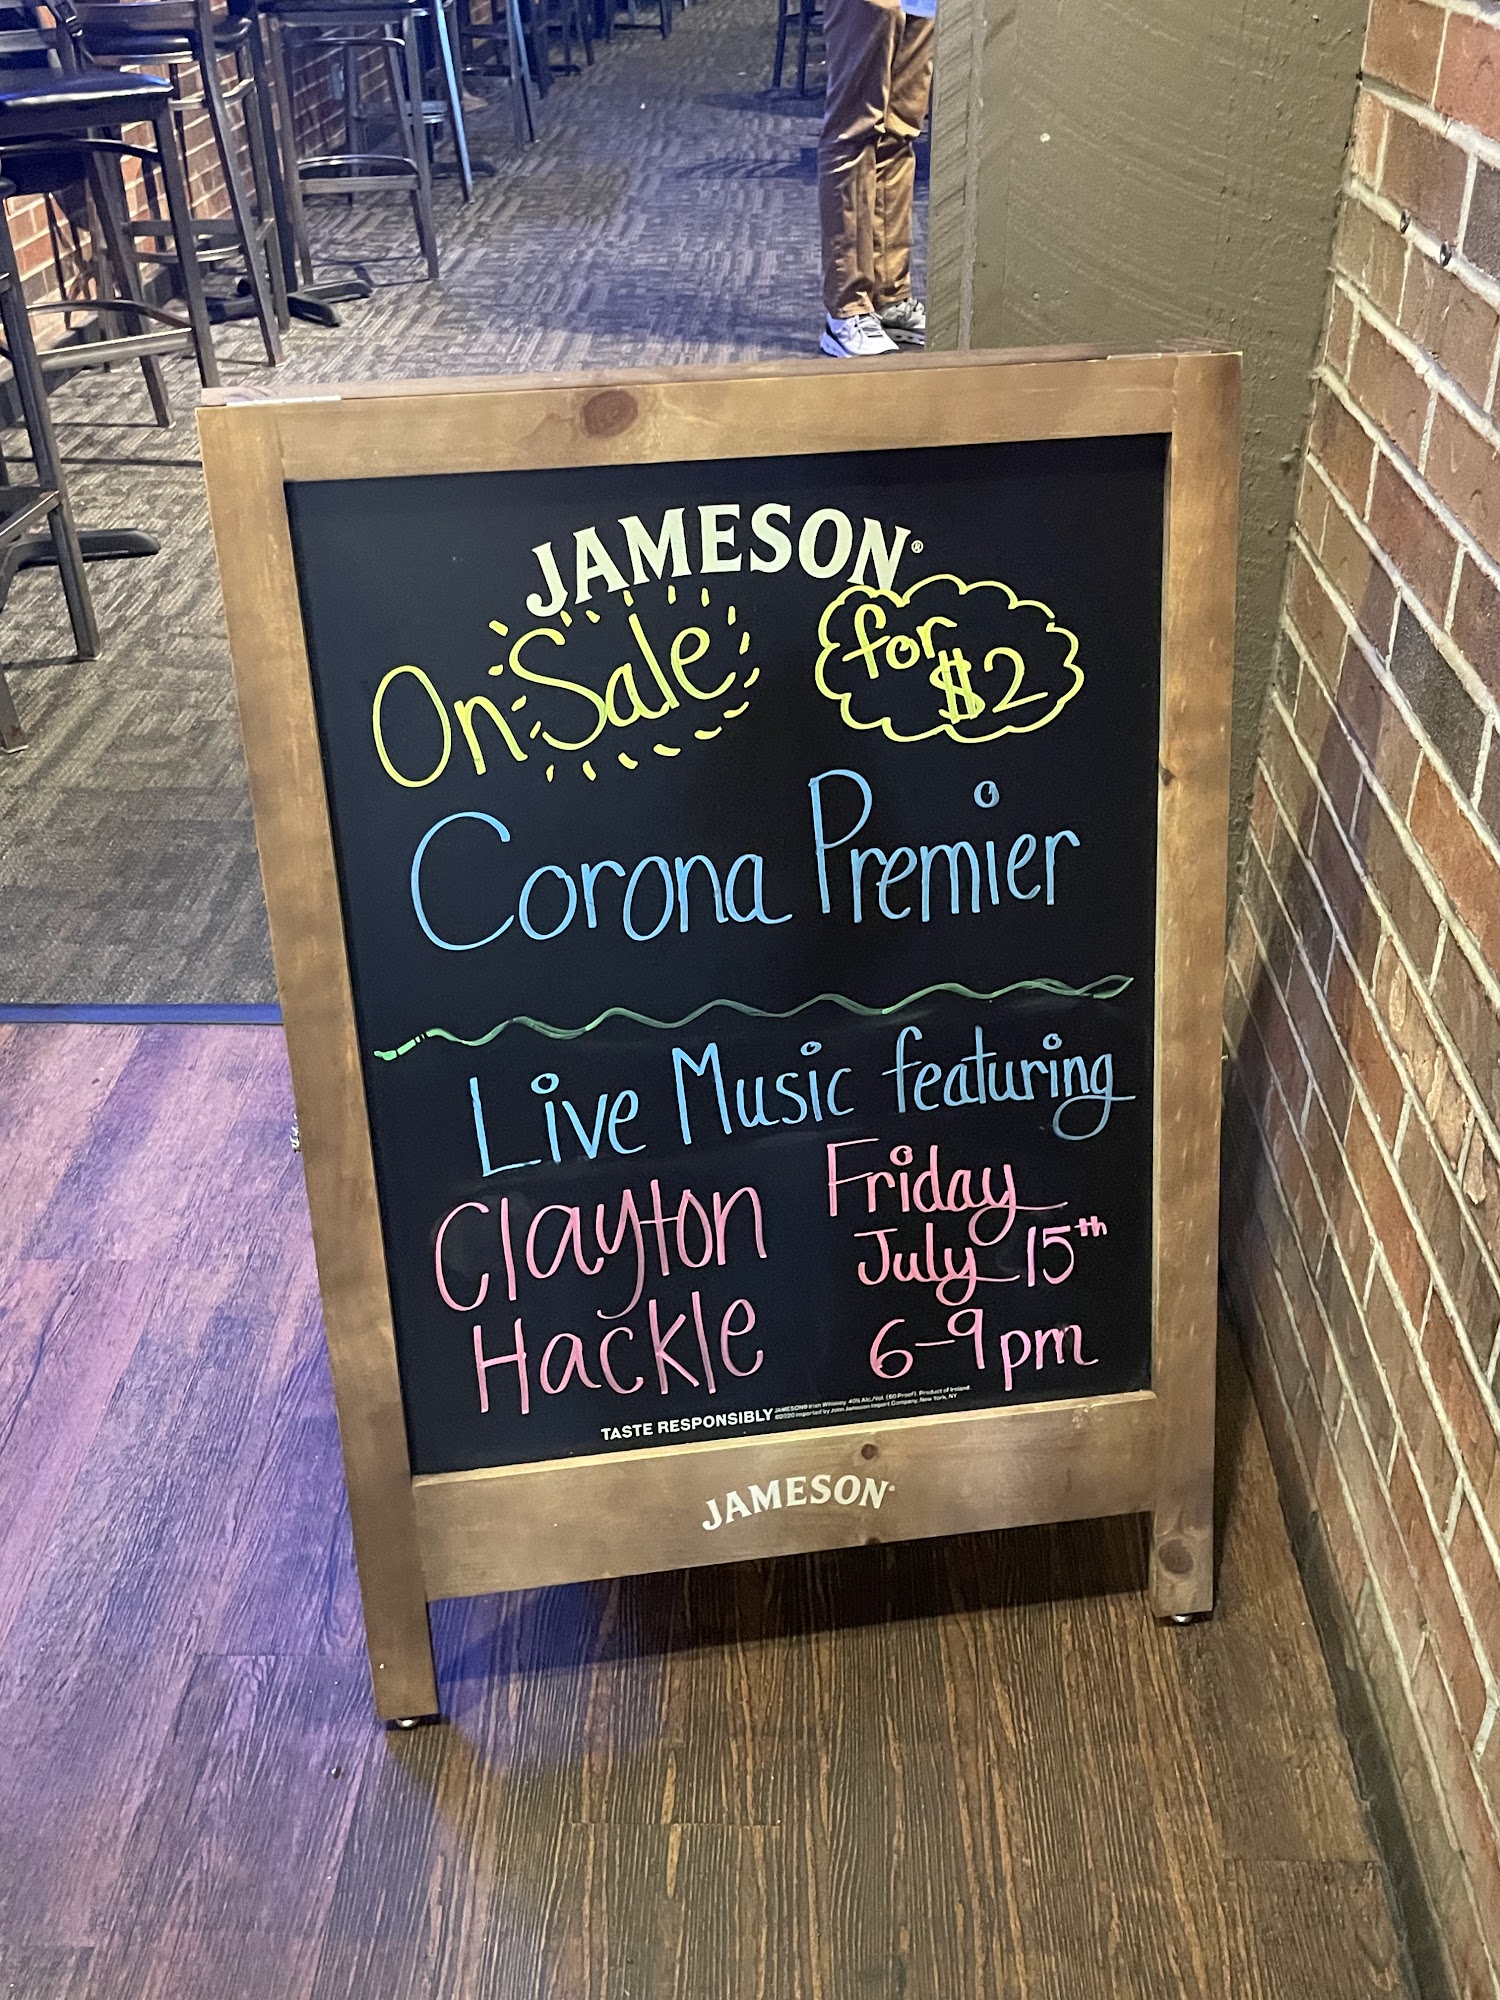 JAMESON®
On Sale for $2
Corona Premier
Live Music featuring
Clayton Hackle
Friday July 15th
6-9pm
TASTE RESPONSIBLY
JAMESON® Irish Whiskey. 40% Alc./Vol. (80 Proof). Product of Ireland.
©2020 Imported by John Jameson Import Company, New York, NY
JAMESON®